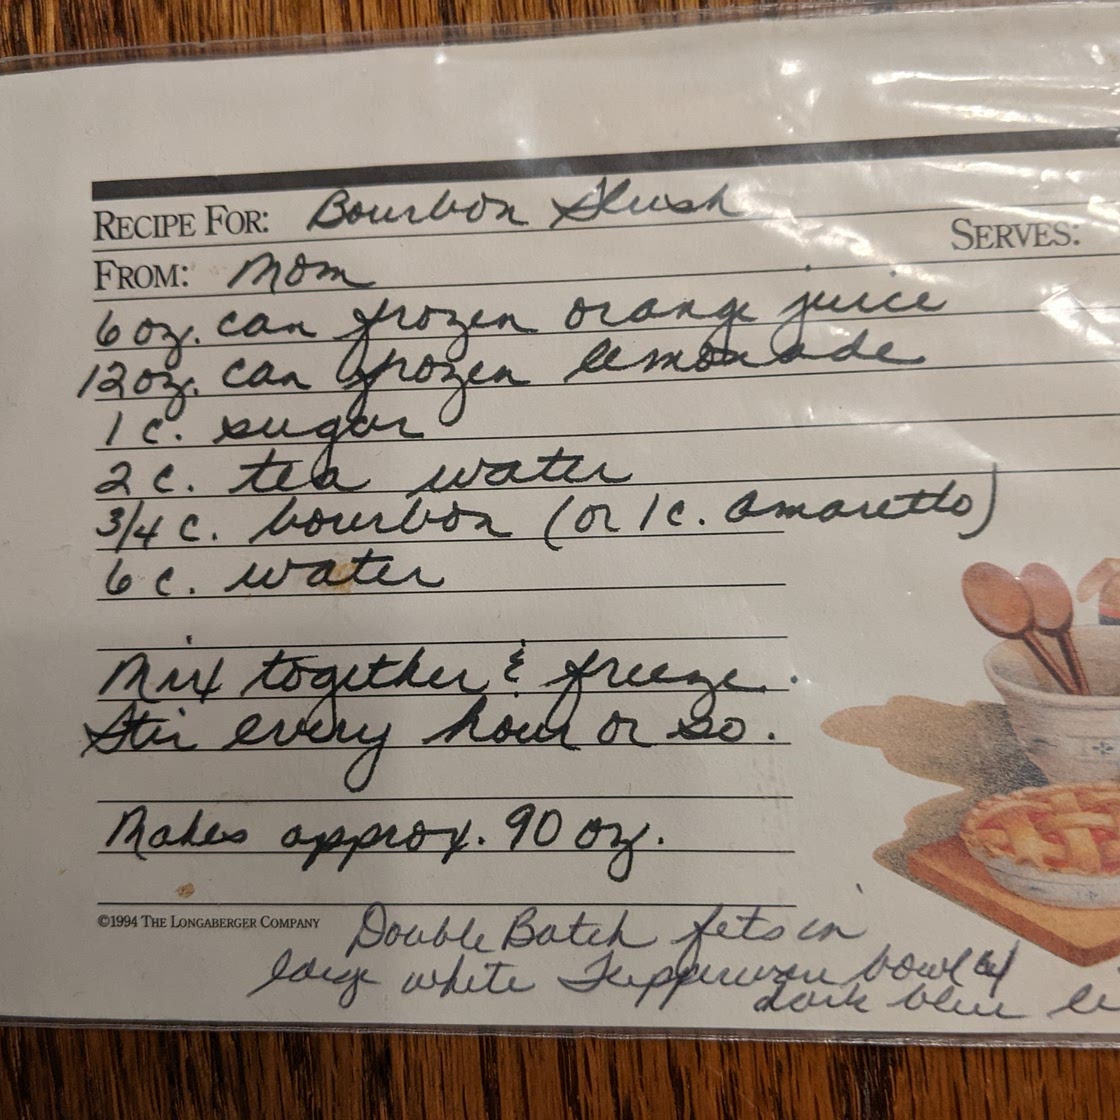 RECIPE FOR: Bourbon Slush
SERVES:
FROM: Mom
6 oz. can frozen orange juice
12 oz. can frozen lemonade
1 c. sugar
2 c. tea water
3/4 c. bourbon (or 1 c. amaretto)
6 c. water
Mix together & freeze.
Stir every hour or so.
Makes approx. 90 oz.
©1994 THE LONGABERGER COMPANY
Double Batch fits in
large white Tupperware bowl w/
dark blue